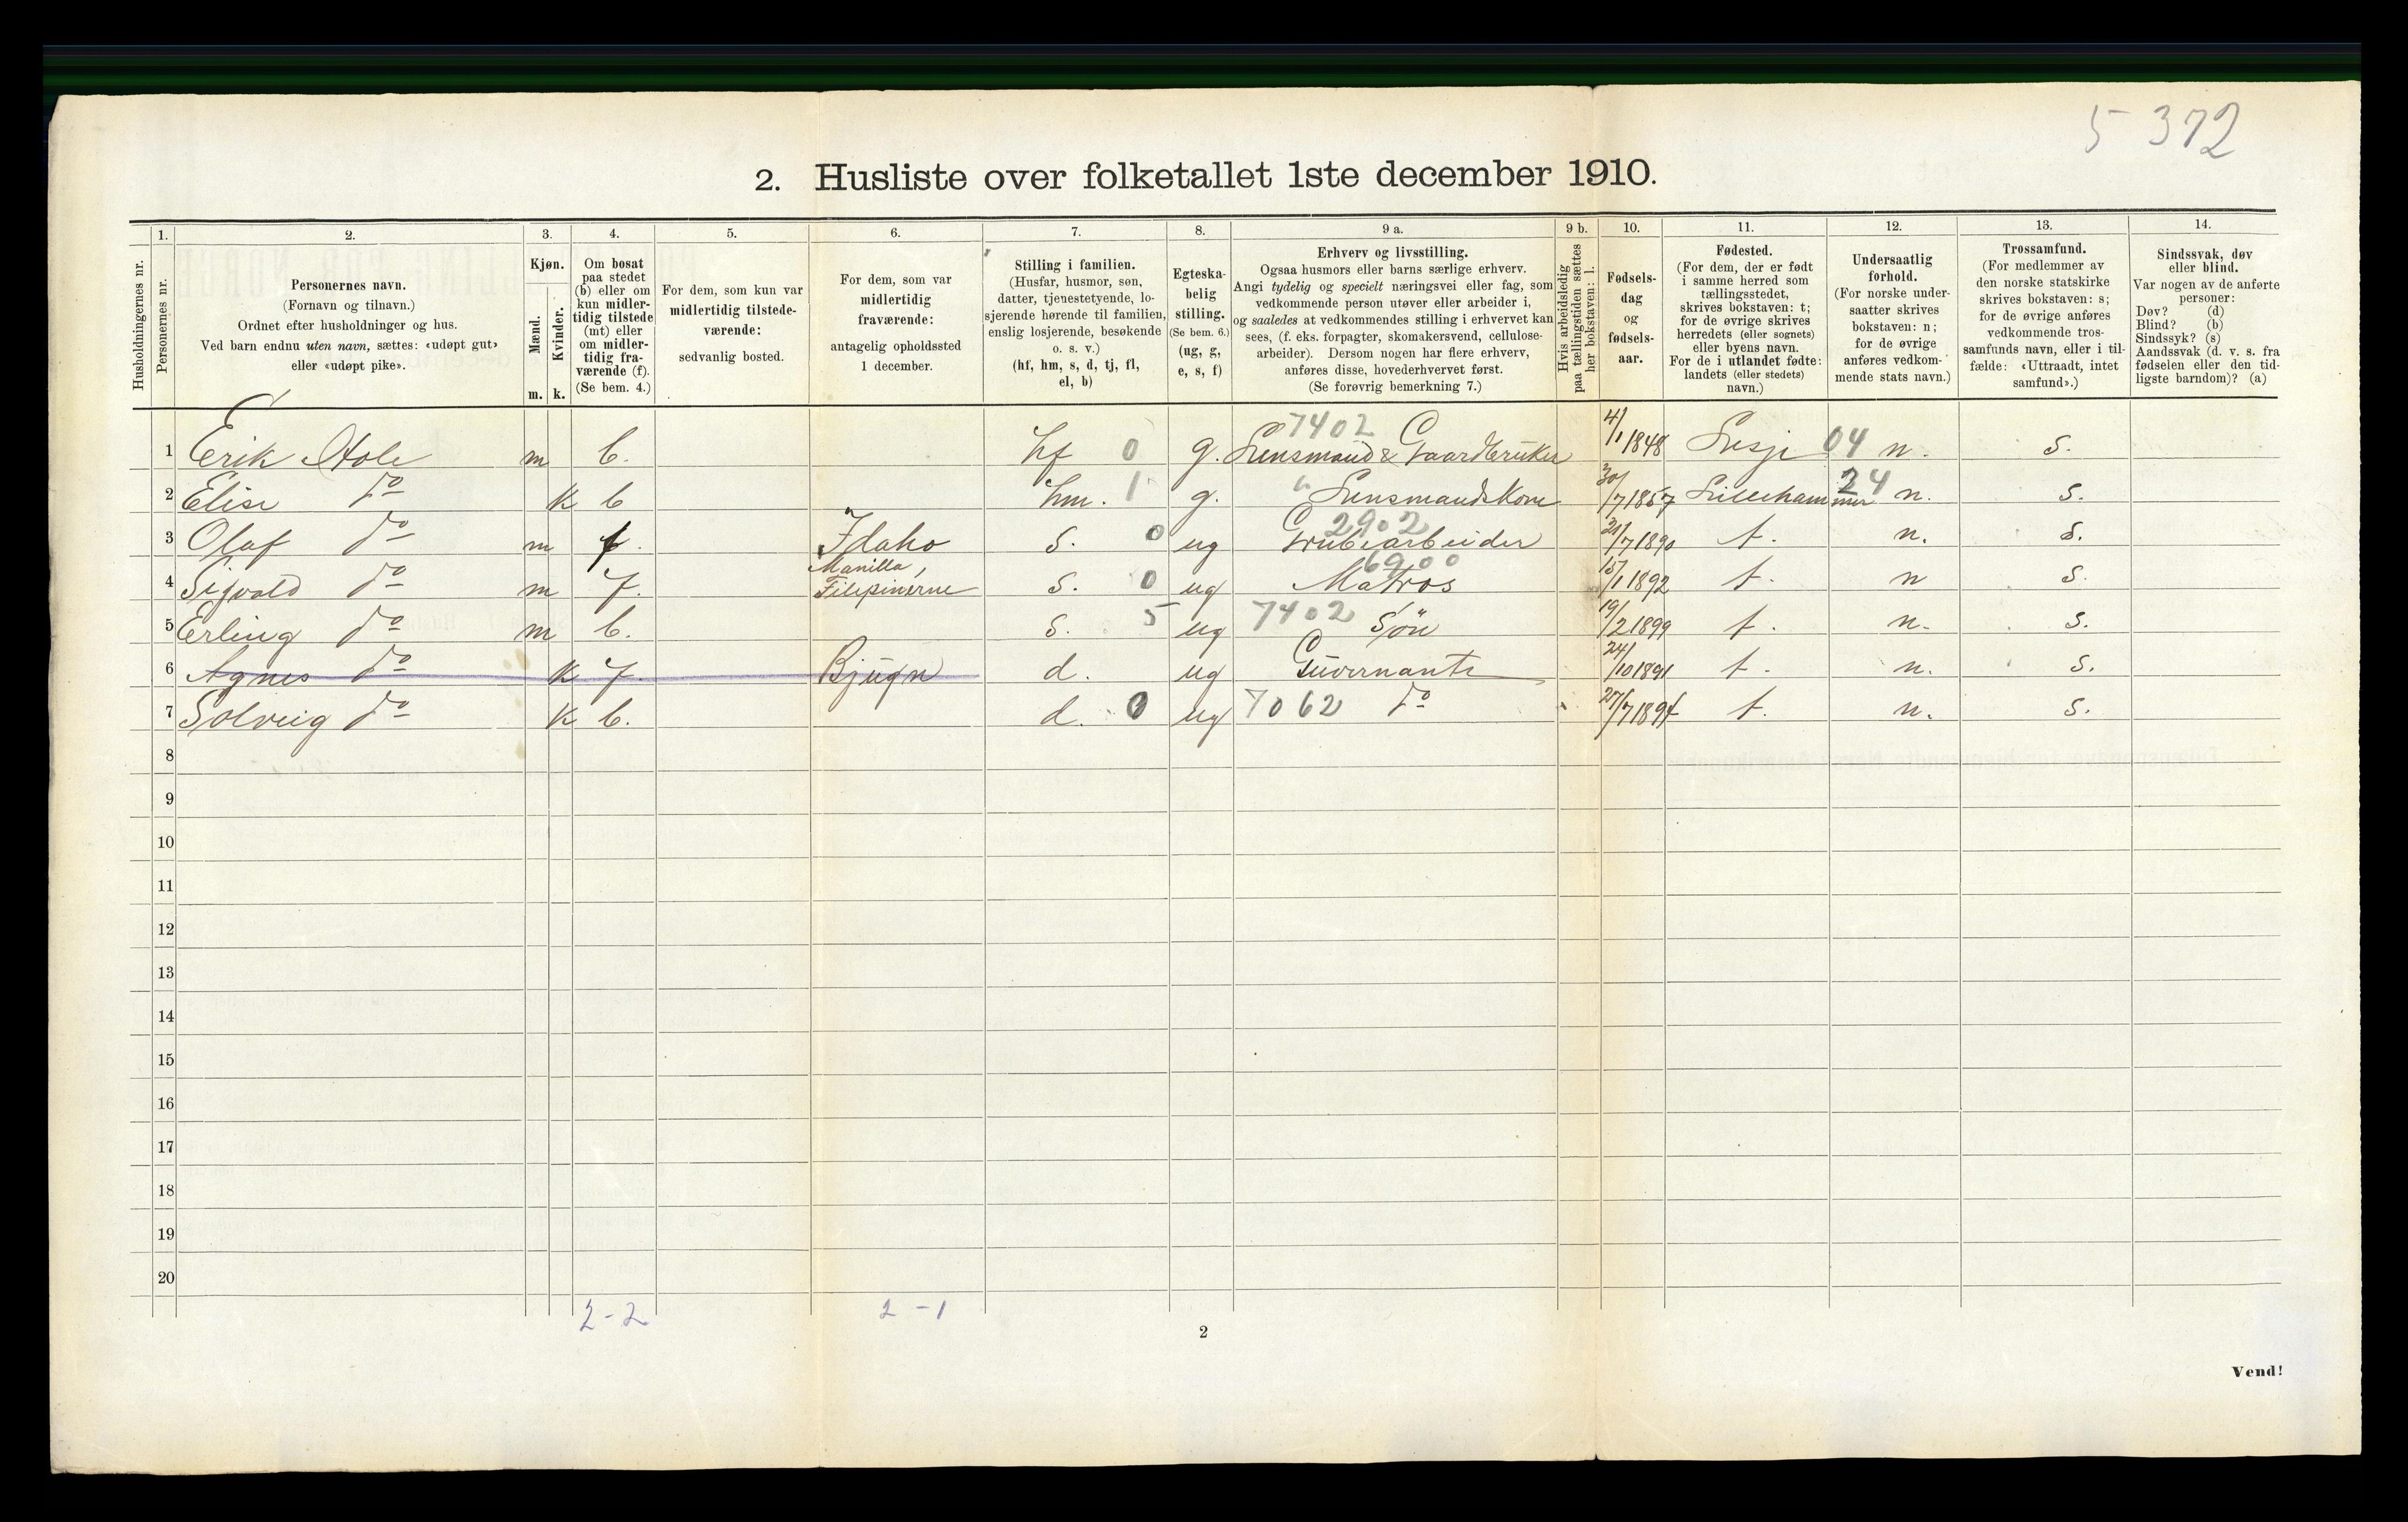 5 372
2. Husliste over folketallet 1ste december 1910.
1. 2. 3. 4. 5. 6. 7. 8. 9 a. 9 b. 10. 11. 12. 13. 14.
Husholdningernes nr.
Personernes nr.
Personernes navn.
(Fornavn og tilnavn.)
Ordnet efter husholdninger og hus.
Ved barn endnu uten navn, sættes: «udøpt gut»
eller «udøpt pike».
Kjøn.
Mænd.
Kvinder.
m. k.
Om bosat
paa stedet
(b) eller om
kun midler-
tidig tilstede
(mt) eller
om midler-
tidig fra-
værende (f).
(Se bem. 4.)
For dem, som kun var
midlertidig tilstede-
værende:
sedvanlig bosted.
For dem, som var
midlertidig
fraværende:
antagelig opholdssted
1 december.
Stilling i familien.
(Husfar, husmor, søn,
datter, tjenestetyende, lo-
sjerende hørende til familien,
enslig losjerende, besøkende
o. s. v.)
(hf, hm, s, d, tj, fl,
el, b)
Egteska-
belig
stilling.
(Se bem. 6.)
(ug, g,
e, s, f)
Erhverv og livsstilling.
Ogsaa husmors eller barns særlige erhverv.
Angi tydelig og specielt næringsvei eller fag, som
vedkommende person utøver eller arbeider i,
og saaledes at vedkommendes stilling i erhvervet kan
sees, (f. eks. forpagter, skomakersvend, cellulose-
arbeider). Dersom nogen har flere erhverv,
anføres disse, hovederhvervet først.
(Se forøvrig bemerkning 7.)
Hvis arbeidsledig
paa tællingstiden sættes
her bokstaven: l.
Fødsels-
dag
og
fødsels-
aar.
Fødested.
(For dem, der er født
i samme herred som
tællingsstedet,
skrives bokstaven: t;
for de øvrige skrives
herredets (eller sognets)
eller byens navn.
For de i utlandet fødte:
landets (eller stedets)
navn.)
Undersaatlig
forhold.
(For norske under-
saatter skrives
bokstaven: n;
for de øvrige
anføres vedkom-
mende stats navn.)
Trossamfund.
(For medlemmer av
den norske statskirke
skrives bokstaven: s;
for de øvrige anføres
vedkommende tros-
samfunds navn, eller i til-
fælde: «Uttraadt, intet
samfund».)
Sindssvak, døv
eller blind.
Var nogen av de anførte
personer:
Døv? (d)
Blind? (b)
Sindssyk? (s)
Aandssvak (d. v. s. fra
fødselen eller den tid-
ligste barndom)? (a)
7402
1 Erik Hole m b. hf 0 g. Lensmand & Gaardbruker 4/1 1848 Lesje 04 n. s.
2 Elise do k b hm. 1 g. " Lensmandskone 30/7 1857 Lillehammer 24 n. s.
2902
3 Olaf do m f. Idaho s. 0 ug Grubearbeider 21/7 1890 t. n. s.
6900
4 Sigvald do m f. Manilla, Filipinerne s. 0 ug Matros 15/1 1892 t. n s.
5 Erling do m b. s. 5 ug 7402 Søn 19/2 1899 t. n. s.
6 Agnes do k f. Bjugn d. ug Guvernante 24/10 1891 t. n. s.
7 Solveig do k b. d. 0 ug 7062 do 27/7 1894 t. n. s.
8
9
10
11
12
13
14
15
16
17
18
19
20
2-2 2-1
2
Vend!